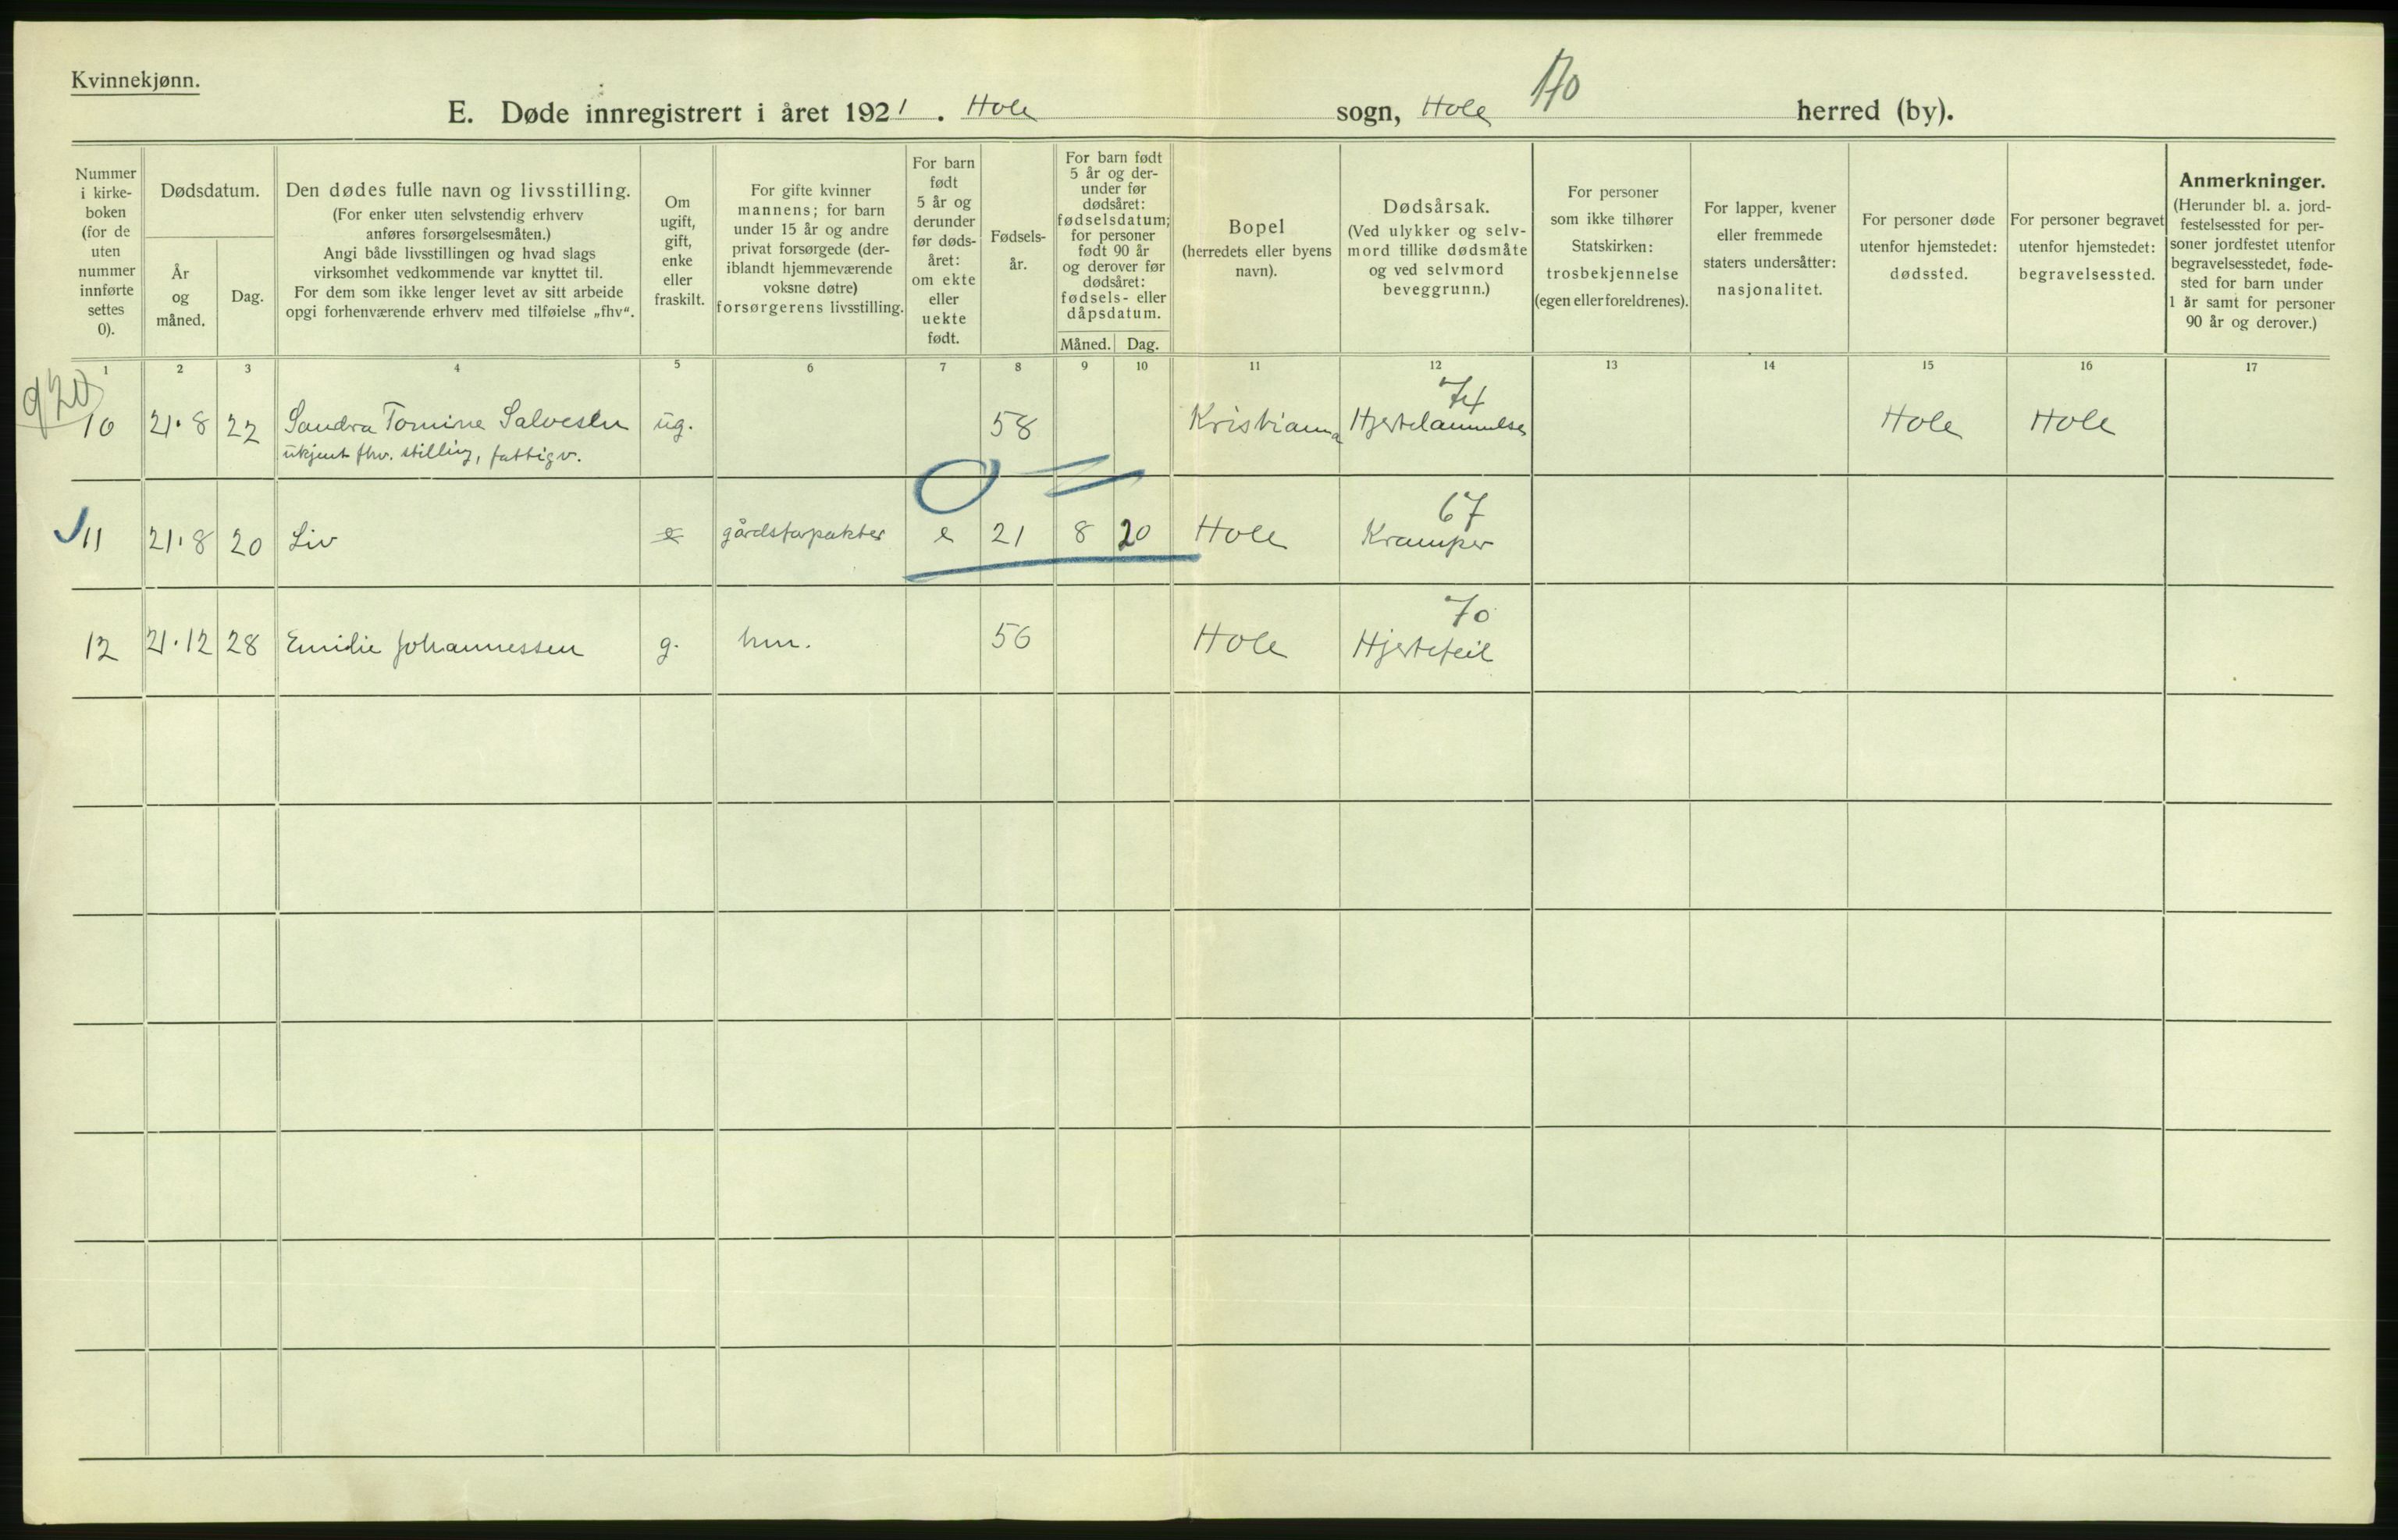 Kvinnekjønn.
170
E. Døde innregistrert i året 1921. Hole sogn, Hole herred (by).
Nummer i kirke- boken (for de uten nummer innførte settes 0).
Dødsdatum.
År og måned.
Dag.
Den dødes fulle navn og livsstilling.
(For enker uten selvstendig erhverv
anføres forsørgelsesmåten.)
Angi både livsstillingen og hvad slags
virksomhet vedkommende var knyttet til.
For dem som ikke lenger levet av sitt arbeide
opgi forhenværende erhverv med tilføielse „fhv“.
Om
ugift,
gift,
enke
eller
fraskilt.
For gifte kvinner
mannens; for barn
under 15 år og andre
privat forsørgede (der-
iblandt hjemmeværende
voksne døtre)
forsørgerens livsstilling.
For barn
født
5 år og
derunder
før døds-
året:
om ekte
eller
uekte
født.
Fødsels-
år.
For barn født
5 år og der-
under før
dødsåret:
fødselsdatum;
for personer
født 90 år
og derover før
dødsåret:
fødsels- eller
dåpsdatum.
Måned. Dag.
Bopel
(herredets eller byens
navn).
Dødsårsak.
(Ved ulykker og selv-
mord tillike dødsmåte
og ved selvmord
beveggrunn.)
For personer
som ikke tilhører
Statskirken:
trosbekjennelse
(egen eller foreldrenes).
For lapper, kvener
eller fremmede
staters undersåtter:
nasjonalitet.
For personer døde
utenfor hjemstedet:
dødssted.
For personer begravet
utenfor hjemstedet:
begravelsessted.
Anmerkninger.
(Herunder bl. a. jord-
festelsessted for per-
soner jordfestet utenfor
begravelsesstedet, føde-
sted for barn under
1 år samt for personer
90 år og derover.)
1 2 3 4 5 6 7 8 9 10 11 12 13 14 15 16 17
920
74
10 21.8 22 Sandra Tomine Salvesen ug. 58 Kristiania Hjertelammelse Hole Hole
ukjent fhv. stilling, fattigv.
67
11 21.8 20 Liv e gårdsforpakter e 21 8 20 Hole Kramper
70
12 21.12 28 Emilie Johannessen g. hm. 56 Hole Hjertefeil